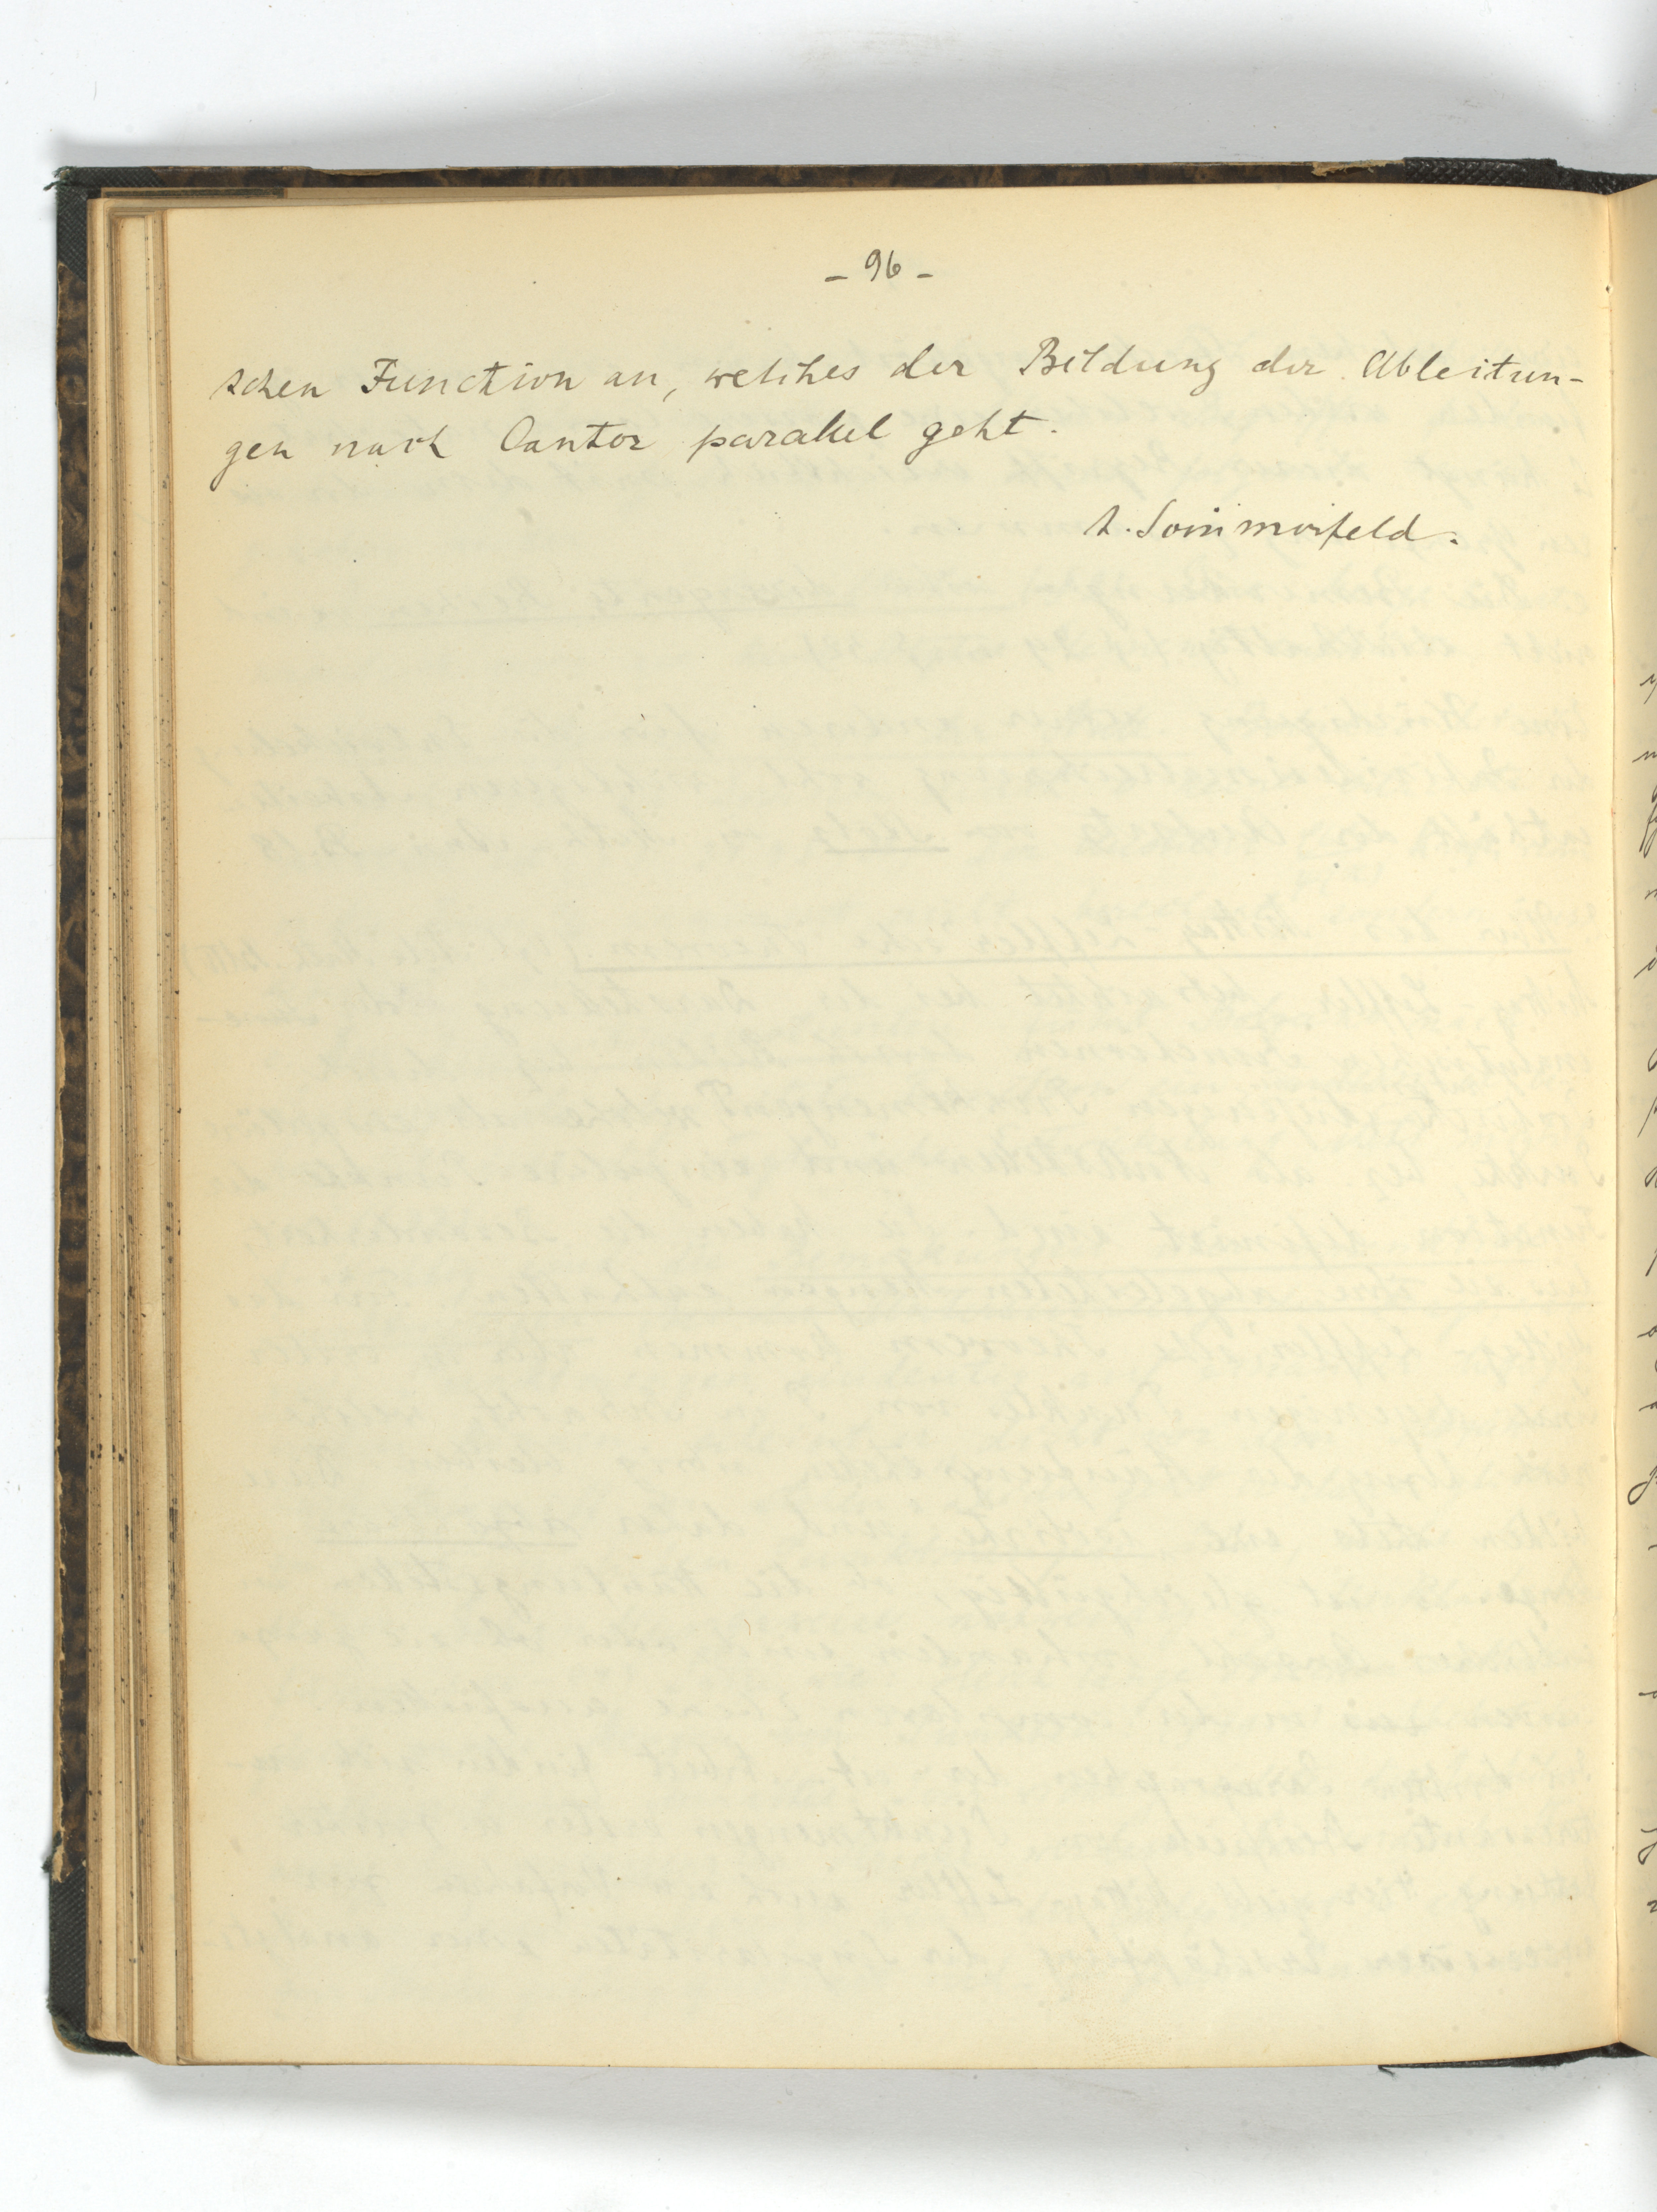 - 96 -
schen Function an, welches der Bildung der Ableitun-
gen nach Cantor parallel geht.
A. Sommerfeld.